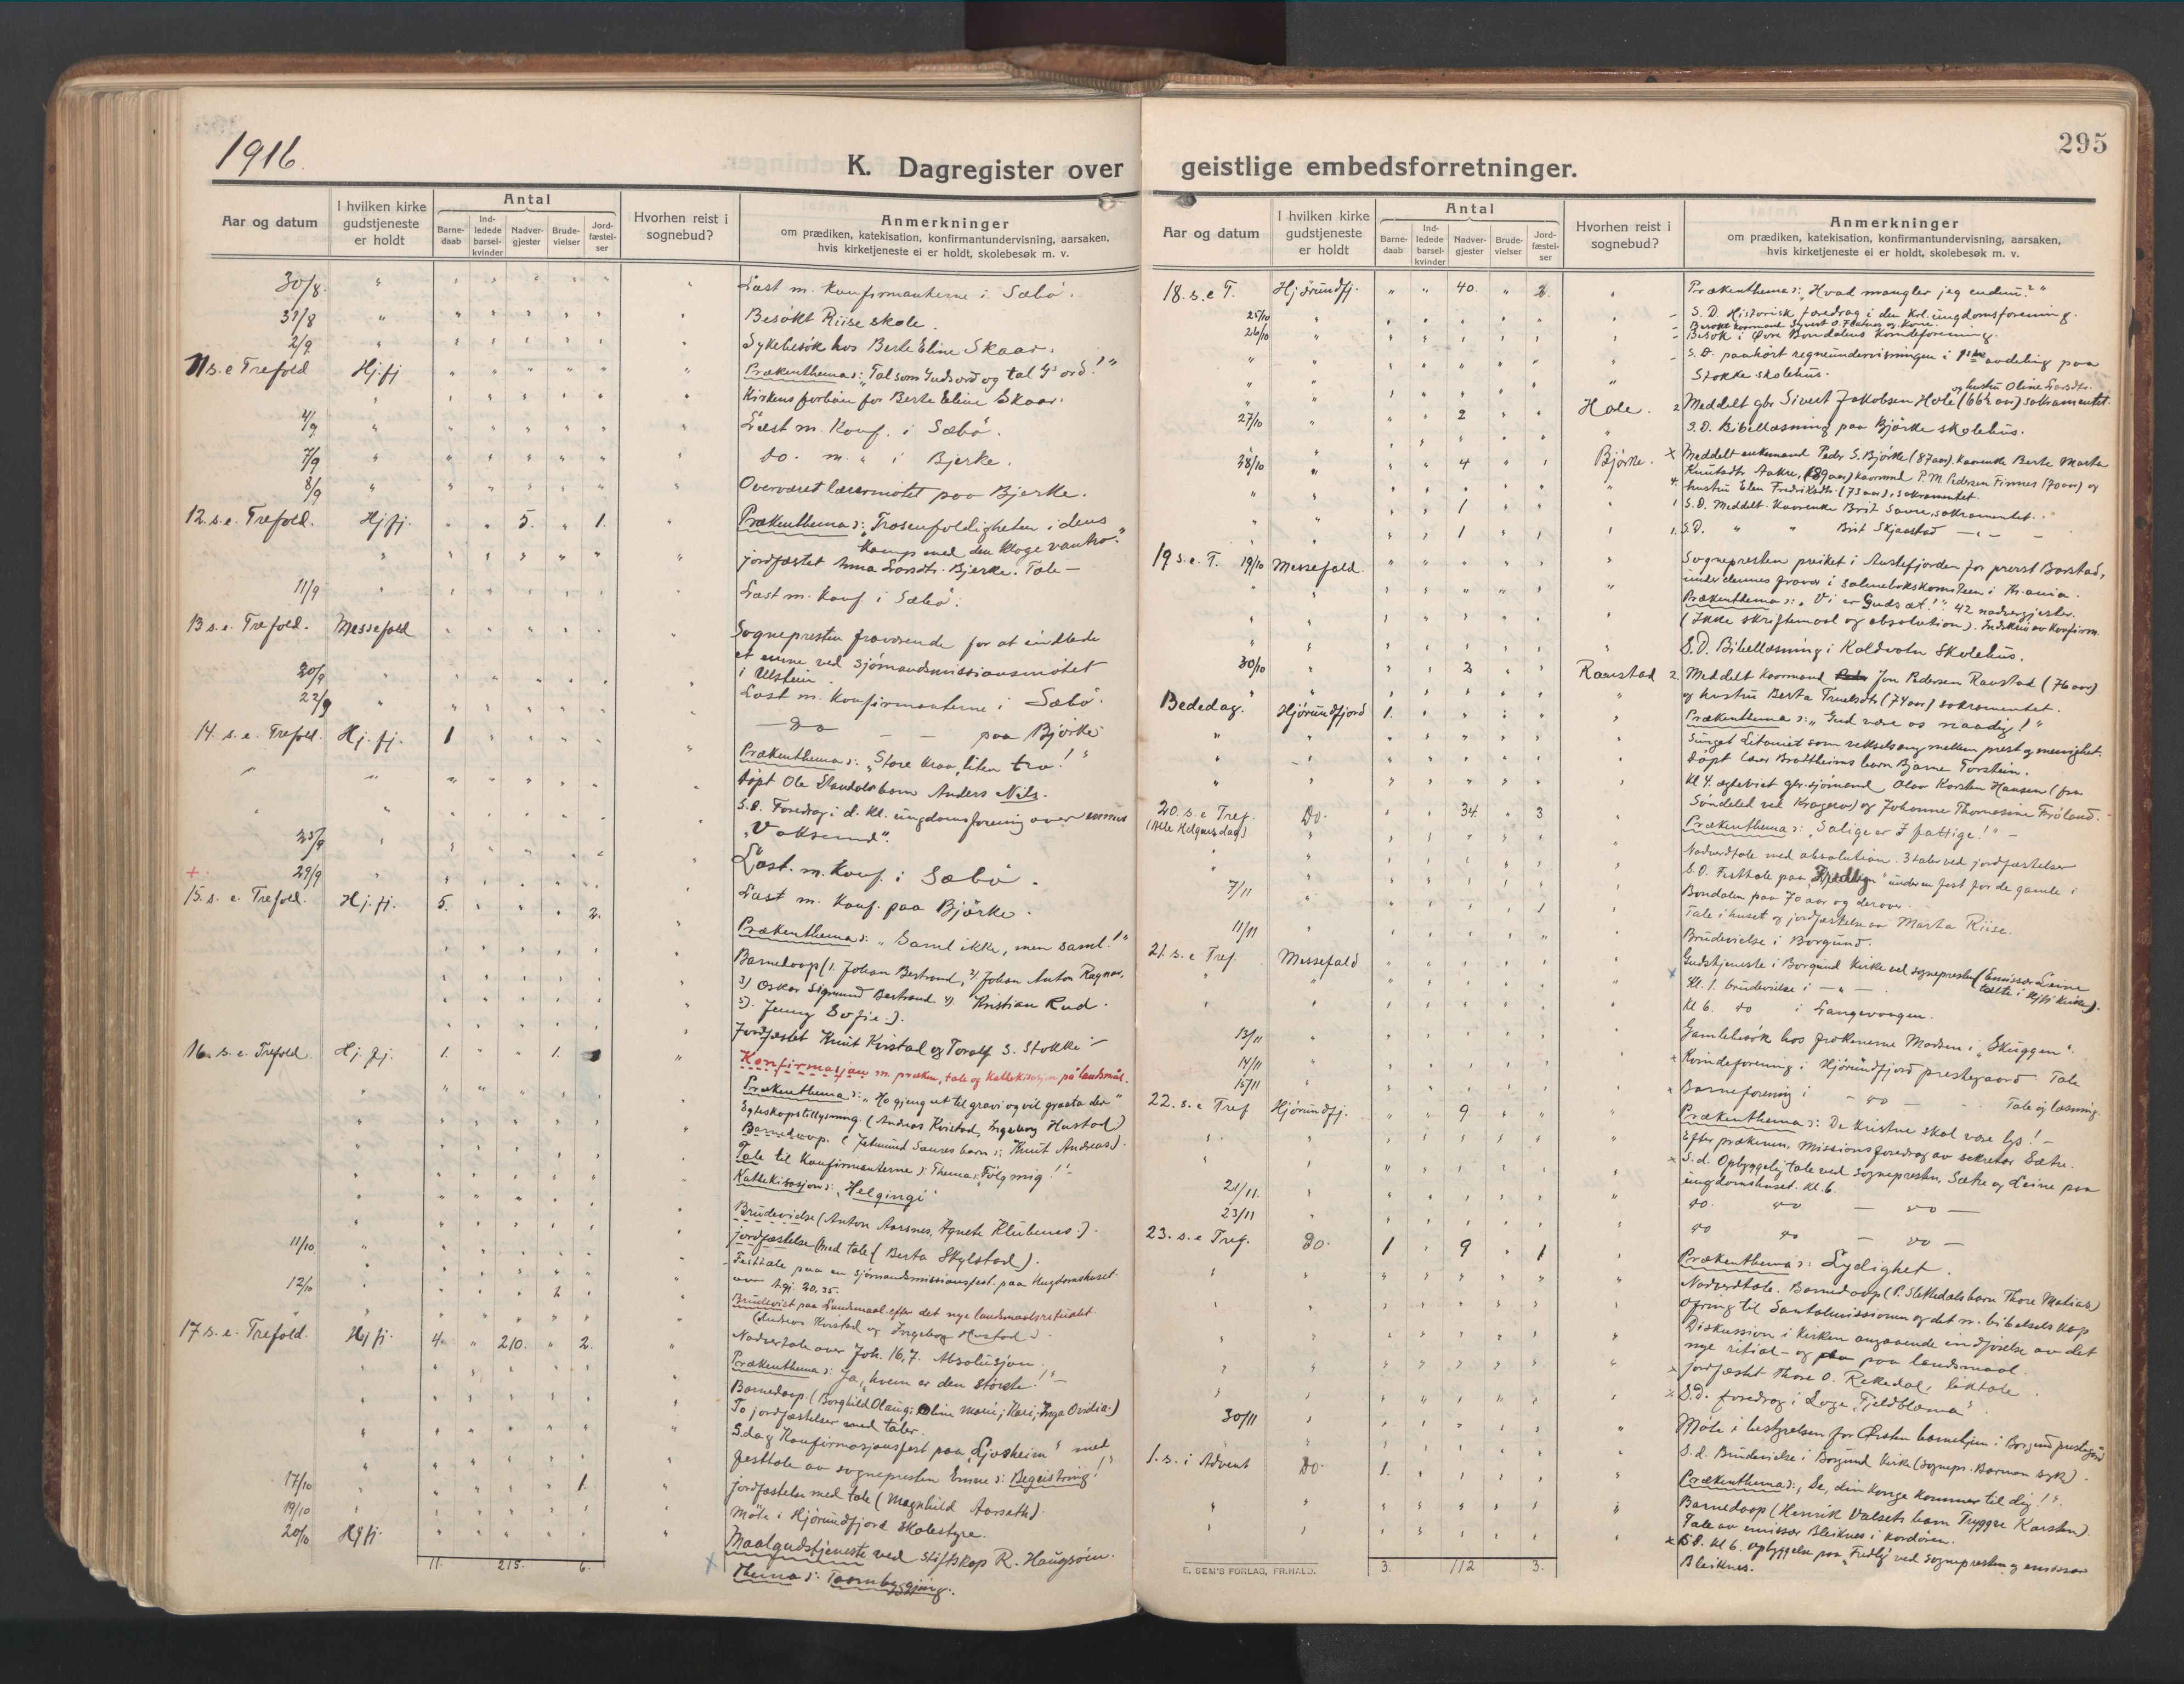 1916.
K. Dagregister over
Aar og datum
I hvilken kirke gudstjeneste er holdt
Antal
Barnedaab
Indledede barselkvinder
Nadvergjester
Brudevielser
Jordfæstelser
Hvorhen reist i sognebud?
Anmerkninger
om prædiken, katekisation, konfirmantundervisning, aarsaken,
hvis kirketjeneste ei er holdt, skolebesøk m. v.
30/8. Læst m. Konfirmanterne i Sæbö.
31/8 Besökt Riise skole.
2/9 Sykebesök hos Berte Eline Skaar.
11 s. e Trefold Hj.fj Prækenthema: "Tal som Guds ord og tal G's ord!"
Kirkens forbön for Berte Eline Skaar.
4/9 Læst m. Konf. i Sæbö.
7/9 do. m. " i Bjerke.
8/9 Overværet lærermötet paa Bjerke.
12. s. e. Trefold. Hj.fj. 5. 1. Prækenthema: "Trosenfoldigheten i dens
Kamp med den kloge vantro."
jordfæstet Anna Larsdtr. Bjerke. Tale —
11/9 Læst m. Konf. i Sæbö.
13 s. e. Trefold. Messefald Sognepresten fraværende for at indlede
et emne ved sjömandsmissionsmötet
i Ulstein.
20/9 Læst m. Konfirmanterne i Sæbö.
22/9 — Do — — paa Bjørke
14. s. e. Trefold. Hj. fj. 1 Prækenthema: "Store krav, liten tro!"
döpt Ole Standals barn Anders Nils.
S. D. Foredrag i d. kl. ungdomsforening over emnet
"Voksund".
25/9 Læst. m. Konf. i Sæbö.
29/9 Læst m. Konf. paa Bjørke.
15. s. e. Trefold. Hj. fj. 5. 2. Prækenthema: "Saml ikke, men saml!"
Barnedaap (1. Johan Bertrand, 2) Johan Anton Ragnar,
3) Oskar Sigmund Bertrand 4). Kristian Rud.
5). Jenny Sofie.).
Jordfæstet Knut Kvistad og Toralf S. Stokke —
16. s. e. Trefold. Hj. fj. 1. 1. Konfirmasjon m. præken, tale og Kattekisasjon på landsmål.
Prækenthema: "Ho gjeng ut til gravi og vil graata der"
Egteskapstillysning (Andreas Kvistad, Ingeborg Hustad)
Barnedaap. ( Jetmund Saures barn: Knut Andreas).
Tale til Konfirmanterne: Thema: Fölg mig!
Kattekisasjon: "Helgingi"
Brudevielse (Anton Aarsnes, Agnete Klubenes.).
jordfæstelse (med tale) ( Berta Skylstad).
11/10 Festtale paa en sjömandsmissionsfest. paa Ungdomshuset.
over Agj. 20, 35.
12/10 Brudeviet paa Landsmaal efter det nye landsmaalsritualet
(Andreas Kvistad og Ingeborg Hustad).
17 s. e. Trefold. Hj fj 4. 210. 2. Nadvertale over Joh. 16, 7. Absolusjon.
Prækenthema: "Ja, hvem er den störste!" —
Barnedaap. (Borghild Olaug; Oline Marie; Kari; Inga Ovidia.)
To jordfæstelser med taler.
S. dag Konfirmasjonsfest paa "Ljosheim" med
festtale av sognepresten Emne: Begeistring!
17/10 1. jordfæstelse med tale (Magnhild Aarseth).
19/10 Möte i Hjörundfjord Skolestyre.
20/10 Hj fj Maalgudstjeneste ved stiftskap R. Haugsöen.
Thema: Taarnbyggjing.
11. 215. 6.
295
geistlige embedsforretninger.
Aar og datum
I hvilken kirke gudstjeneste er holdt
Antal
Barnedaab
Indledede barselkvinder
Nadvergjester
Brudevielser
Jordfæstelser
Hvorhen reist i sognebud?
Anmerkninger
om prædiken, katekisation, konfirmantundervisning, aarsaken,
hvis kirketjeneste ei er holdt, skolebesøk m. v.
18. s. e T. Hjörundfj. 40. 2. Prækenthema: "Hvad mangler jeg endnu?"
S. D. Historisk foredrag i den Krl. ungdomsforening.
25/10 Besökt
26/10 Besök i Øvre Bondalens Kvindeforening.
S. D. paahört regneundervisningen i 1ste avdeling paa
Stokke skolehus.
og hustru Oline Larsdtr.
27/10 2 Hole. 2 Meddelt gbr Sivert Jakobsen Hole (66½ aar) sakramentet.
S. D. Bibellæsning paa Bjørke skolehus.
28/10 4 Bjørke. Meddelt enkemand Peder S. Bjørke (87 aar), Kaarenke Berte Marta
Knutsdtr Aakre, (89 aar) kaarmand P. M. Pedersen Finnes (70 aar) og
4. hustru Elen Fredriksdtr. (73 aar), sakramentet.
1 1 S. D. Meddelt Kaarenke Brit Saure, sakramentet.
1 1. S.D. " " Brit Skjaastad — " —
19 s. e. T. 19/10 Messefald. Sognepresten preiket i Austefjorden for prost Barstad,
under dennes fravær i salmebokskomiteen i Kr.ania.
Prækenthema: "Vi er Guds æt!" 42 nadvergjester.
(Ikke skriftemaal og absolution). Indskriv av konfirm.
S. D. Bibellæsning i Kaldvatn Skolehus.
30/10 2 Raustad 2 Meddelt kaarmand Jon Pedersen Raustad (76 aar)
og hustru Berta Truelsdtr (74 aar) sakramentet.
Bededag. Hjörundfjord 1. Prækenthema: "Gud være os naadig!"
Sunget Litaniet som vekselsang mellem prest og menighet.
döpt lærer Brattheims barn Bjarne Torstein.
Kl 4. egteviet gbr. sjömand Olav Karsten Hansen (fra
Söndeled ved Kragerø) og Johanne Thomasine Fröland.
20. s. e Tref. Do. 34. 3 Prækenthema: "Salige er I fattige!" —
(Alle Helgnesdag)
Nadverdtale med absolution. 3 taler ved jordfæstelser
S. D. Festtale paa under en fest for de gamle i
Bondalen paa 70 aar og derover.
7/11 Tale i huset og jordfæstelse av Marta Riise.
11/11 Brudevielse i Borgund.
21. s. e Tref. Messefald Gudstjeneste i Borgund Kirke ved sognepresten (Emissær Leine
talte i Hjfj Kirke).
Kl. 1. brudevielse i — " —
Kl 6. do i Langevaagen.
13/11 Gamlebesök hos frökenerne Madsen i "Skuggen".
14/11 Kvindeforening i Hjörundfjord prestegaard. Tale
15/11 Barneforening i — do — Tale og læsning.
22. s. e Tref Hjörundfj. 9 Prækenthema: De kristne skal være lys! —
Efter prækenen, Missionsforedrag av sekretær Sætre.
S. d. Opbyggelig tale ved sognepresten, Sætre og Leine paa
ungdomshuset. Kl. 6.
21/11. do. do — do —
23/11 do do — do —
23. s. e Tref. Do. 1 9 1 Prækenthema: Lydighet.
Nadverdtale. Barnedaap (P. Slettedals barn Thore Matias)
Ofring til Santalmissionen og det n. bibelselskap
Diskussion i Kirken angaaende indförelse av det
nye ritual - og paa landsmaal.
jordfæstet Thore O. Rekkedal, liktale.
S.d. foredrag i Loge "Fjeldblama".
30/11 Möte i bestyrelsen for Ørsten barnehjem i Borgund prestegård
S. d. Brudevielse i Borgund Kirke (Sognepr. Barman syk).
1. s. i Advent Do. 1. Prækenthema: "Se, din konge kommer til dig!"
Barnedaap (Henrik Valsets barn Tryggve Karsten).
Tale av emissær Bleiknes i kordören.
S.D. Kl 6. opbyggelse paa "Fredly" ved Sognepresten og emissær
Bleiknes.
E. SEM'S FORLAG, FR.HALD.
3. 112 3.